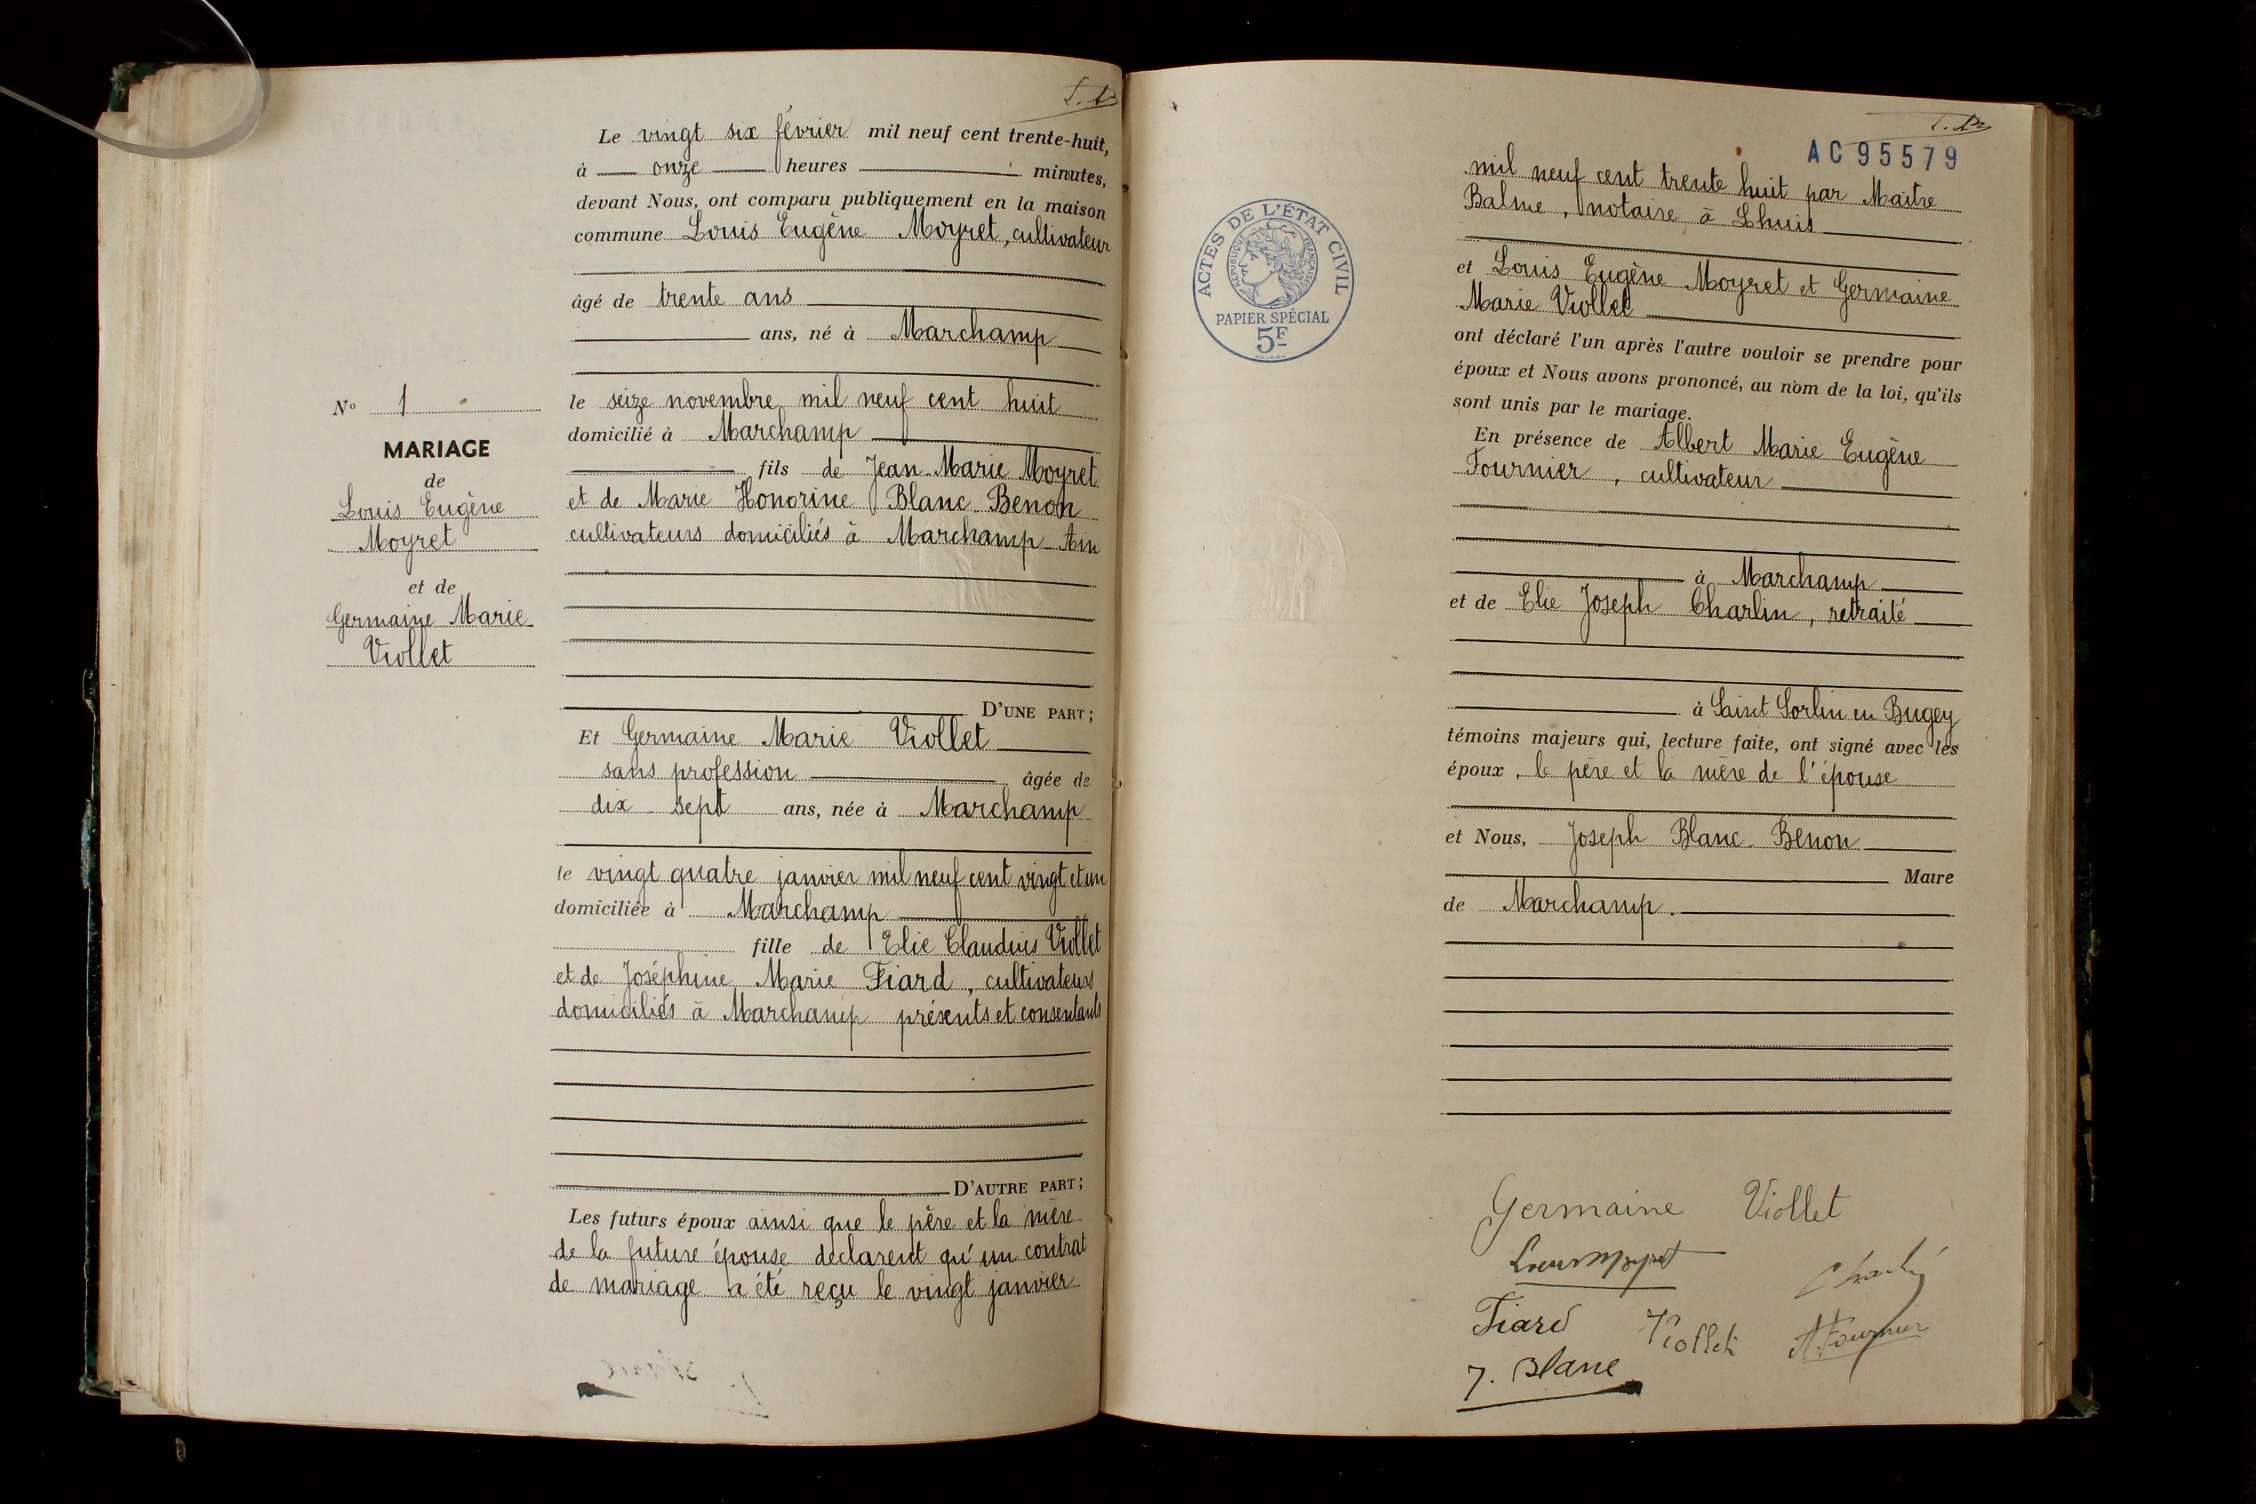 Le vingt six février mil neuf cent trente-huit,
à onze heures minutes,
devant Nous, ont comparu publiquement en la maison
commune Louis Eugène Moyret, cultivateur
âgé de trente ans
ans, né à Marchamp
le seize novembre mil neuf cent huit
domicilié à Marchamp
fils de Jean-Marie Moyret
et de Marie Honorine Blanc-Benon
cultivateurs domiciliés à Marchamp-Ain
D'UNE PART;
N° 1
MARIAGE
de
Louis Eugène
Moyret
et de
Germaine Marie
Viollet
Et Germaine Marie Viollet
sans profession âgée de
dix-sept ans, née à Marchamp
le vingt quatre janvier mil neuf cent vingt et un
domiciliée à Marchamp
fille de Elie Claudius Viollet
et de Joséphine Marie Fiard, cultivateurs
domiciliés à Marchamp présents et consentants
D'AUTRE PART;
Les futurs époux ainsi que le père et la mère
de la future épouse déclarent qu'un contrat
de mariage a été reçu le vingt janvier
AC95579
ACTES DE L'ÉTAT CIVIL
RÉPUBLIQUE FRANÇAISE
PAPIER SPÉCIAL
5F
mil neuf cent trente huit par Maître
Balme, notaire à Lhuis
et Louis Eugène Moyret et Germaine
Marie Viollet
ont déclaré l'un après l'autre vouloir se prendre pour
époux et Nous avons prononcé, au nom de la loi, qu'ils
sont unis par le mariage.
En présence de Albert Marie Eugène
Fournier, cultivateur
à Marchamp
et de Elie Joseph Charlin, retraité
à Saint Sorlin en Bugey
témoins majeurs qui, lecture faite, ont signé avec les
époux, le père et la mère de l'épouse
et Nous, Joseph Blanc-Benon
Maire
de Marchamp.
Germaine Viollet
Louis Moyret
Charlin
Fiard Viollet A Fournier
J. Blanc